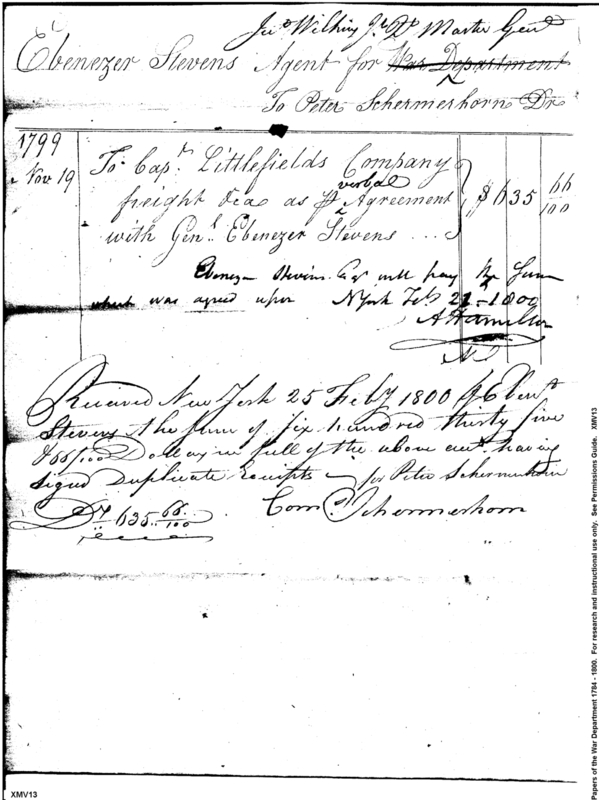 Jno Wilkins Jr Qr Master Genl
Ebenezer Stevens Agent for War Department
To Peter Schermerhorn Dr
1799
Nov 19
To Capt. Littlefields Company
verbal
freight &ca as pr Agreement
with Genl. Ebenezer Stevens ...
$ 635 66/100
Ebenezer Stevens Esqr will pay the sum
which was agreed upon NYork Feb 21 - 1800
A Hamilton
Received New York 25 Feby 1800 of Ebenr
Stevens the sum of six hundred thirty five
& 66/100 Dollars in full of the above acct having
signed Duplicate receipts - for Peter Schermerhorn
Dr 635 66/100 Corns. Schermerhorn
XMV13
Papers of the War Department 1784 - 1800. For research and instructional use only. See Permissions Guide. XMV13